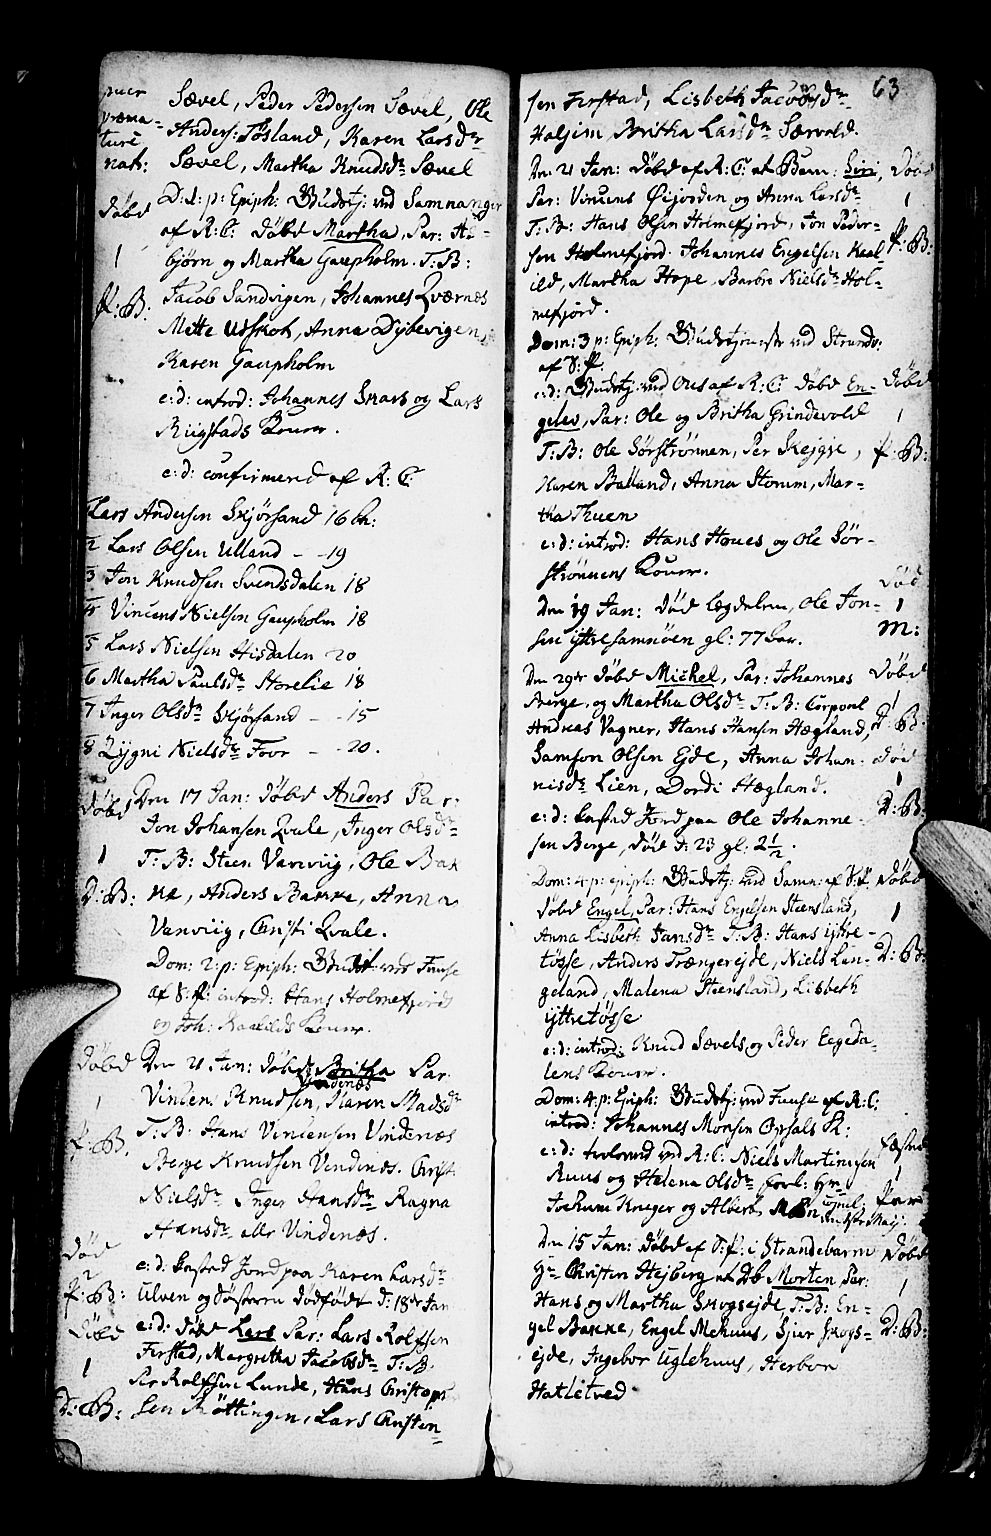 puer
præma-
turè
nat:
Sævel, Peder Pedersen Sævel, Ole
Anders: Tøsland, Karen Larsdr
Sævel, Martha Knudsdr Sævel
Døbd
1
P: B:
D: 1: p: Epiph: Gudstj: ved Samnanger
af R: C: døbd Martha, Par: As-
bjørn og Martha Gaupholm. T: B:
Jacob Sandvigen, Johannes Qværnes
Mette Udskot, Anna Dybevigen,
Karen Gaupholm
e: d: introd: Johannes Skars og Lars
Riigstads Koner.
e: d: confirmered af R: C:
Lars Andersen Skjørsand 16 Aar:
2 Lars Olsen Ulland - - 19
3 Jon Knudsen Svendsdalen 18
4 Vincens Nielsen Gaupholm 18
5 Lars Nielsen Hisdalen 20
6 Martha Paulsdr Storelie 18
7 Inger Olsdr Skjørsand - - 15
8 Zygni Nielsdr Foor - - 20.
Døbd
1
D: B:
Den 17 Jan: døbd Anders Par:
Jon Johansen Qvale, Inger Olsdr
T: B: Steen Vanviig, Ole Bak
ke, Anders Bakke, Anna
Vanviig, Christi Qvale.
Dom: 2: p: Epiph: Gudst: ved Fuuse
af S: P: introd: Hans Holmefjords
og Joh: Kaalilds Koner.
Døbd
1
P: B.
Den 21 Jan: døbd Britha Par.
Vindenæs
Vincens Knudsen, Karen Madsdr
T: B. Hans Vincensen Vindenæs
Berge Knudsen Vindenæs. Christ:
Nielsdr Inger Hansdr Ragna
Hansdr alle Vindenæs.
Død
2
P: B:
e: d: kasted Jord paa Karen Larsdr
Ulven og Søsteren dødfødt d: 18de Jan
Døbd
1
D: B:
e: d: døbd Lars Par: Lars Rolfsen
Ferstad, Margretha Jacobsdr T: B.
Per Rolfsen Lunde, Hans Christoph
sen Røttingen, Lars Christen
63
sen Ferstad, Lisbeth Jacobsdr
Haljem, Britha Larsdr Særvold.
Døbd
1
P: B:
Den 21 Jan: døbd af R: C: et Barn: Siri,
Par: Vincens Øijorden og Anna Larsdr
T: B: Hans Olsen Holmefjord, Jon Peder-
sen Holmefjord. Johannes Engelsen Kaal
ild, Martha Hope, Barbro Nielsdr Hol-
mefjord.
Dom: 3 p: Epiph: Gudstjeneste ved Strandv:
af S: P.
Døbd
1
P: B:
e: d: Gudstj: ved Ous af R: C: døbd En-
gelev, Par: Ole og Britha Grindevold
T: B: Ole Sørstrønnen, Per Skejgje,
Karen Balland, Anna Storum, Mar-
tha Tuen
e: d: introd: Hans Houes og Ole Sør-
strønnens Koner.
død
1
M:
Den 19 Jan: død lægdelem, Ole Jon-
sen yttresamnøen gl: 77 Aar.
Døbd
1
D: B.
Den 29de døbd Michel, Par: Johannes
Berge, og Martha Olsdr T: B: Corporal
Andreas Vagner, Hans Hansen Hægland,
Samson Olsen Ejde, Anna Johan-
nisdr Lien, Dordi Hægland.
død
1
D: B:
e: d: kasted Jord paa Ole Johanne-
sen Berge, død d: 23 gl: 2½.
Døbd
1
D: B:
Dom: 4: p: epiph: Gudstj: ved Samn: af S: P
døbd Engel, Par: Hans Engelsen Steensland,
Anna Lisbeth Jansdr T: B: Hans yttre-
tøsse, Anders Trængerejde, Niels Lan-
geland, Malena Steensland, Lisbeth
yttretøsse
e: d: introd: Knud Sævels og Peder Eegeda-
lens Koner.
Dom: 4: p: Epiph: Gudstj: ved Fuuse af R: C:
introd: Johannes Monsen Opsals K:
fæstned
1
Par
e: d: troloved ved R: C: Niels Martinusen
Ruus og Helena Olsdr forl: Hr
Jochum Kruger og Albert
Døbd
1
D: B:
Den 15 Jan: døbd af S: P: i Strandebarm
Hr Christen Hejberg et Db Morten Par:
Hans og Martha Skogsejde, T: B: En-
gel Bakke, Engel Mehuus, Sjur Skogs-
ejde, Ingebor Uglehuus, Herbor
Hatletved